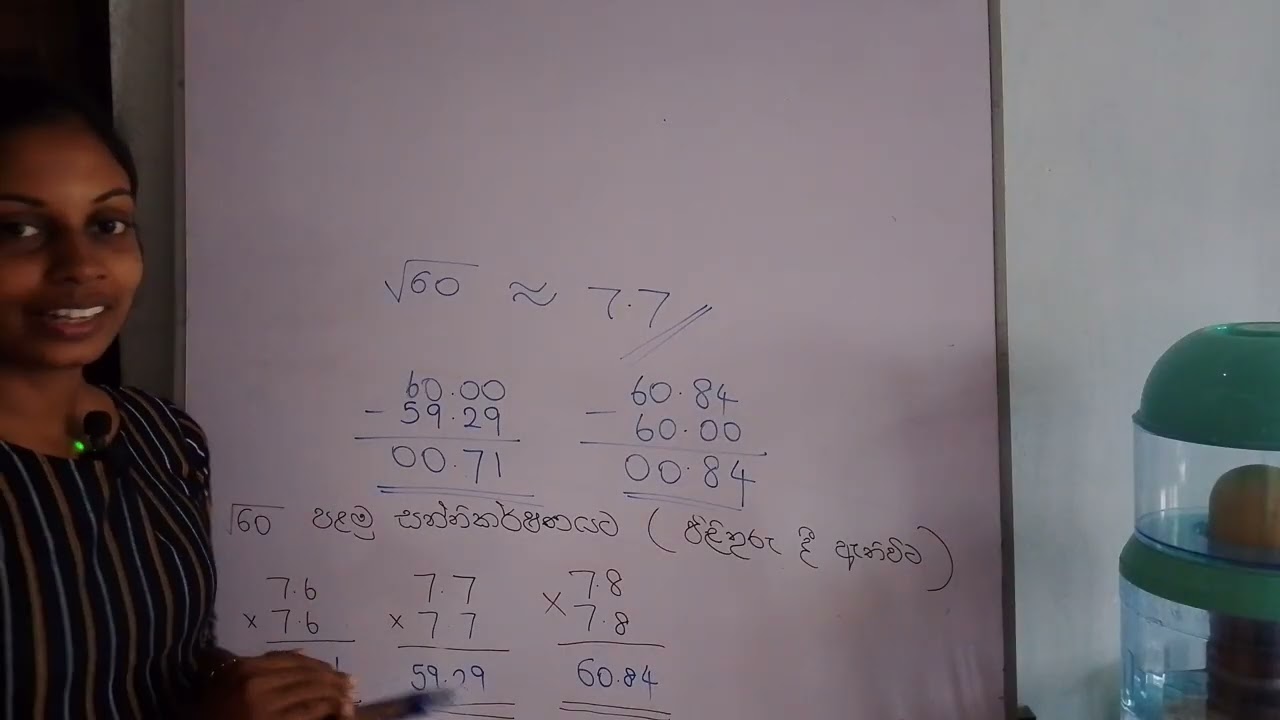 √60 ≈ 7.7
60.00 60.84
- 59.29 - 60.00
00.71 00.84
√60 පළමු සන්නිකර්ෂණයට ( පිළිතුරු දී ඇතිවිට )
7.6 7.7 7.8
× 7.6 × 7.7 × 7.8
59.29 60.84